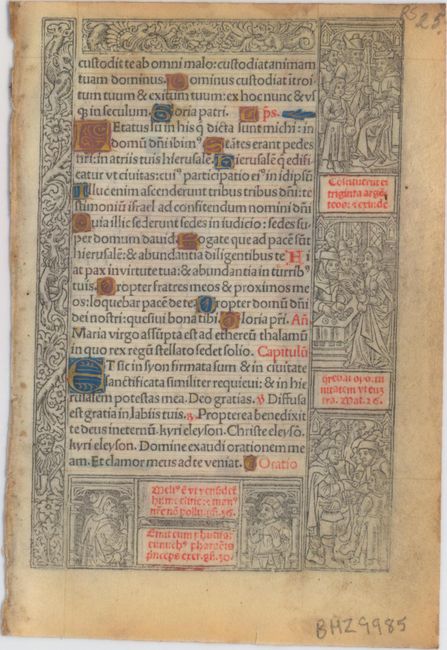 custodit te ab omni malo: custodiat animam
tuam dominus. Dominus custodiat ītroi
tum tuum & exitum tuum: ex hoc nunc & vs
in seculum. Gloria patri. ps.
LEtatus sum in his q̄ dicta sunt michi: in
domū dn̄i ibim⁹. Stātes erant pedes
nr̄i: in atriis tuis hierusalē. Hierusalē q̄ edifi
catur vt ciuitas: cui⁹ participatio ei⁹ in idipsū
Illuc enim ascenderunt tribus tribus dn̄i: te
stimoniū israel ad confitendum nomini dn̄i
Quia illic sederunt sedes in iudicio: sedes su
per domum dauid. Rogate que ad pacē sūt
hierusalē: & abundantia diligentibus te Fi
at pax in virtute tua: & abundantia in turrib⁹
tuis. Propter fratres meos & proximos me
os: loquebar pacē de te Propter domū dn̄i
dei nostri: quesiui bona tibi. Gloria pr̄i. Añ.
Maria virgo assūpta est ad ethereū thalamū
in quo rex regū stellato sedet solio. Capitulū
ET sic in syon firmata sum & in ciuitate
sanctificata similiter requieui: & in hie
rusalem potestas mea. Deo gratias. Diffusa
est gratia in labiis tuis. Propterea benedixit
te deus in eternū. kyri eleyson. Christe eleysō.
kyri eleyson. Domine exaudi orationem me
am. Et clamor meus ad te veniat. Oratio
Cōstituerūt ei
triginta argē
teos: & exīde
q̄rebat opo.tu
nitatem vt eū
tra. Mat. 26.
BHZ9985